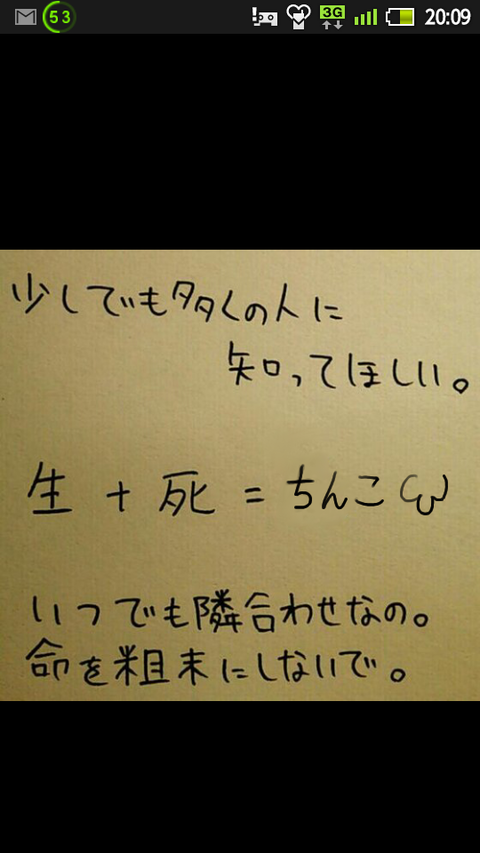 53 3G 20:09
少しでも多くの人に
知ってほしい。
生 + 死 = ちんこω
いつでも隣合わせなの。
命を粗末にしないで。